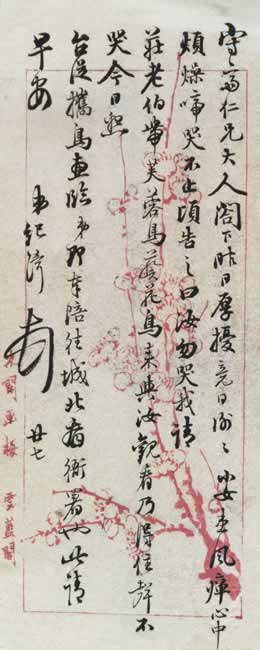 守之富仁兄大人閣下昨日厚擾竟日謝謝小女患風瘴心中
煩燥啼哭不止頃告之曰汝勿哭我請
莊老伯帶芙蓉鳥裝花鳥來與汝觀看乃得住聲不
哭今日懇
台從攜鳥惠臨弟即奉陪往城北看衙署也此請
早安
弟紀澤頓
廿七